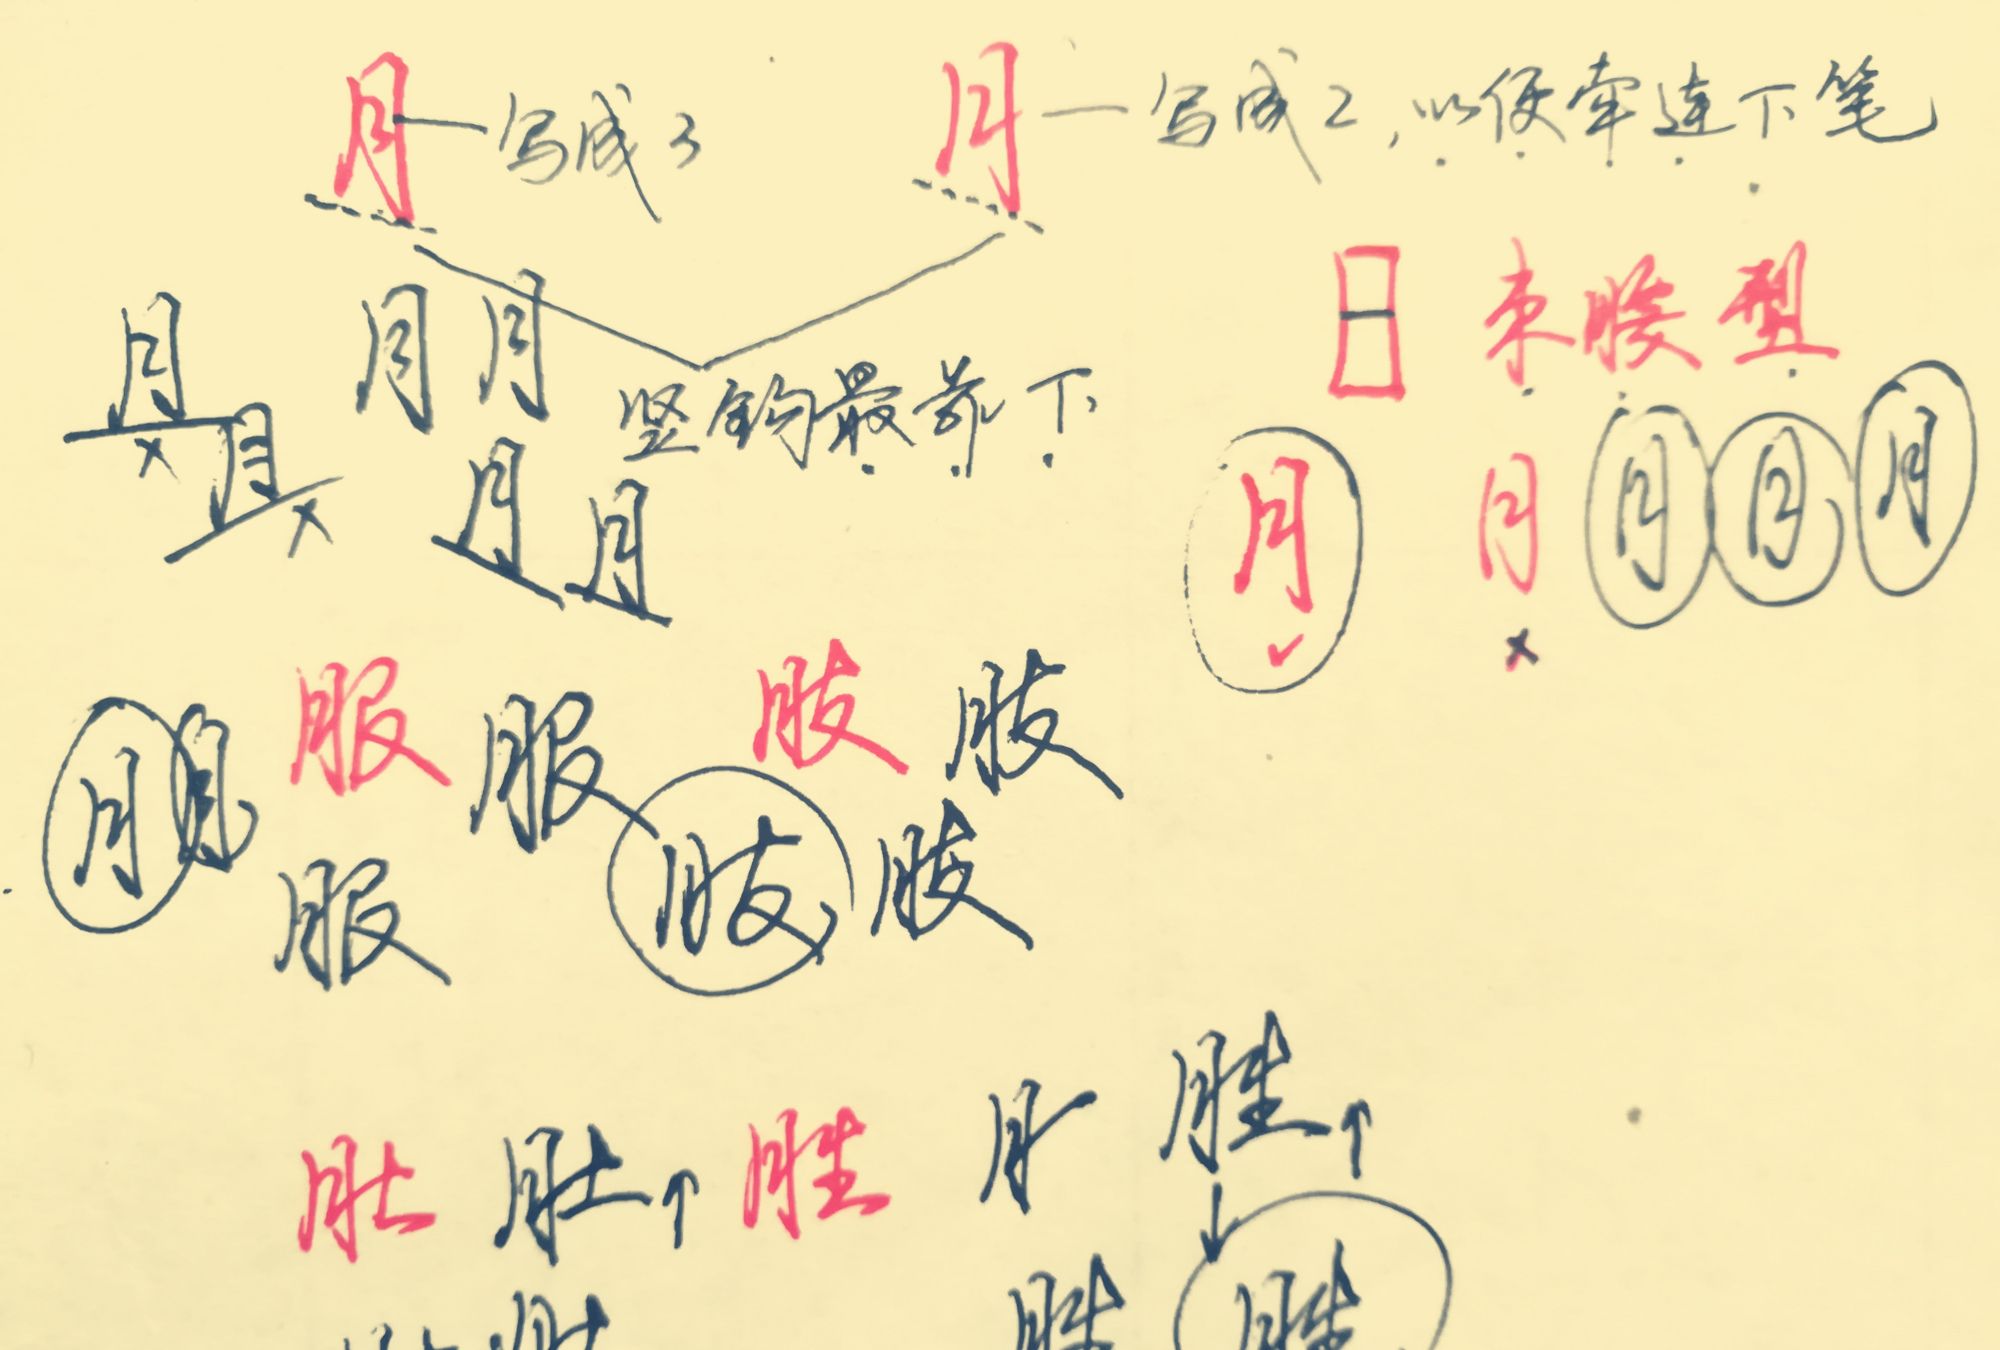 月 写成3 月 写成2,以便牵连下笔
月 月 月 束腰型
月 竖钩最靠下
月 月 月 月 月 月 月
服 肢 肢
月 月 服
服 肢 肢
胜
肚 肚 胜
胜 胜